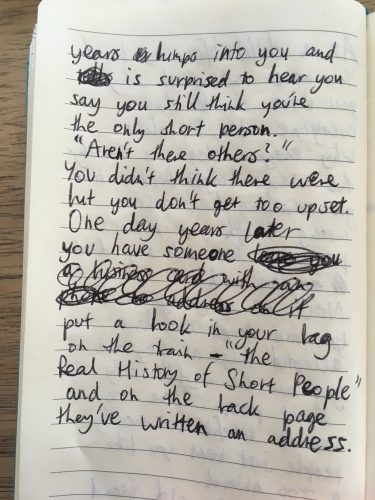 years bumps into you and
is surprised to hear you
say you still think you're
the only short person.
"Aren't there others?"
You didn't think there were
but you don't get too upset.
One day years later
you have someone leave you
a business card with an
address on it
put a book in your bag
on the train - "the
Real History of Short People"
and on the back page
they've written an address.